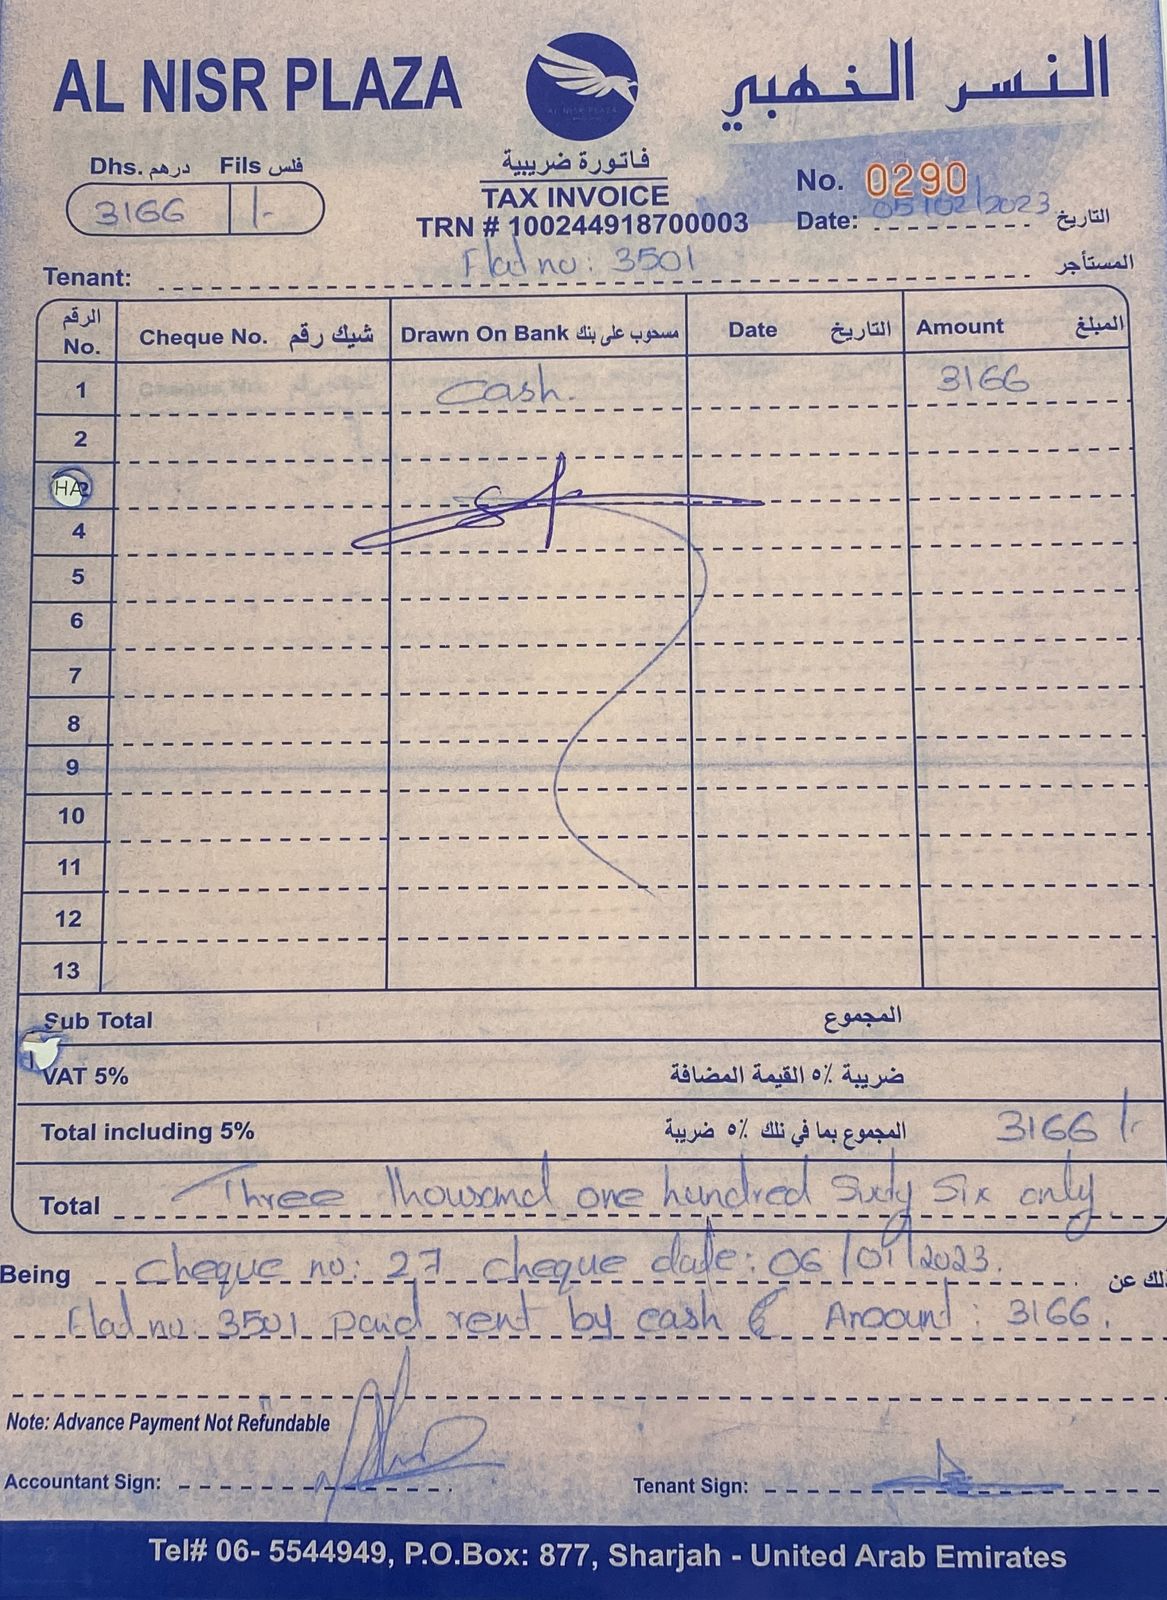 AL NISR PLAZA
AL NISR PLAZA
النسر الذهبي
Dhs. درهم Fils فلس
3166 /-
فاتورة ضريبية
TAX INVOICE
TRN # 100244918700003
No. 0290
Date: 05/02/2023 التاريخ
Tenant: Flat no: 3501 المستأجر
الرقم No. Cheque No. شيك رقم Drawn On Bank مسحوب على بنك Date التاريخ Amount المبلغ
1 Cash. 3166
2
HA
4
5
6
7
8
9
10
11
12
13
Sub Total المجموع
VAT 5% ضريبة ٥٪ القيمة المضافة
Total including 5% المجموع بما في ذلك ٥٪ ضريبة 3166 /-
Total Three thousand one hundred Sixty Six only
Being Cheque no: 27 cheque date: 06/01/2023. ذلك عن
Flat no: 3501 paid rent by cash Amount: 3166.
Note: Advance Payment Not Refundable
Accountant Sign: Tenant Sign:
Tel# 06- 5544949, P.O.Box: 877, Sharjah - United Arab Emirates